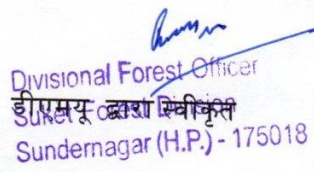 Divisional Forest Officer
डीएमयू द्वारा स्वीकृत
Suket
Sundernagar (H.P.) - 175018